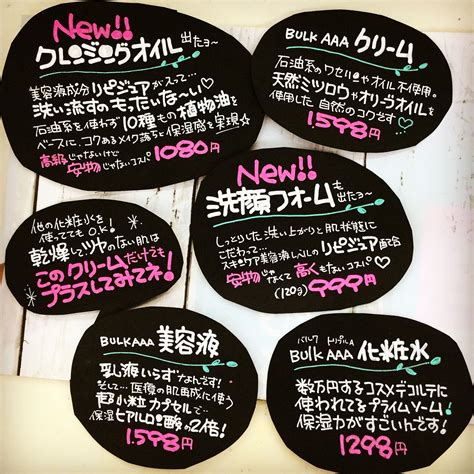 New!!
クレンジングオイル 出たョ〜
美容液成分リピジュアが入って…
洗い流すのもったいな〜い♡
石油系を使わず10種もの植物油を
ベースに、コクあるメイク落ちと保湿感を実現☆
高級じゃないけど
安物じゃないコスパ 1080円
BULK AAA クリーム
石油系のワセリンやオイル不使用。
天然ミツロウやオリーヴオイルを
使用した自然のコクです♡
1,598円
New!!
洗顔フォームも 出たョ〜
しっとりした洗い上がりと肌状態に
こだわって…
スキンケア美容液レベルのリピジュア配合
安物じゃなくて高くもないコスパ♡
(120g) 999円
他の化粧水を
使っててもO.K!
乾燥してツヤのない肌は
このクリームだけでも
プラスしてみてネ!
BULKAAA 美容液
乳液いらずなんです!
そして…医療の肌再成に使う
超小粒カプセルで…
保湿ヒアルロン酸の2倍!
1,598円
バルク トリプルA
BULK AAA 化粧水
数万円するコスメデコルテに
使われてるプライムソーム!
保湿力がすごいんです!
1298円